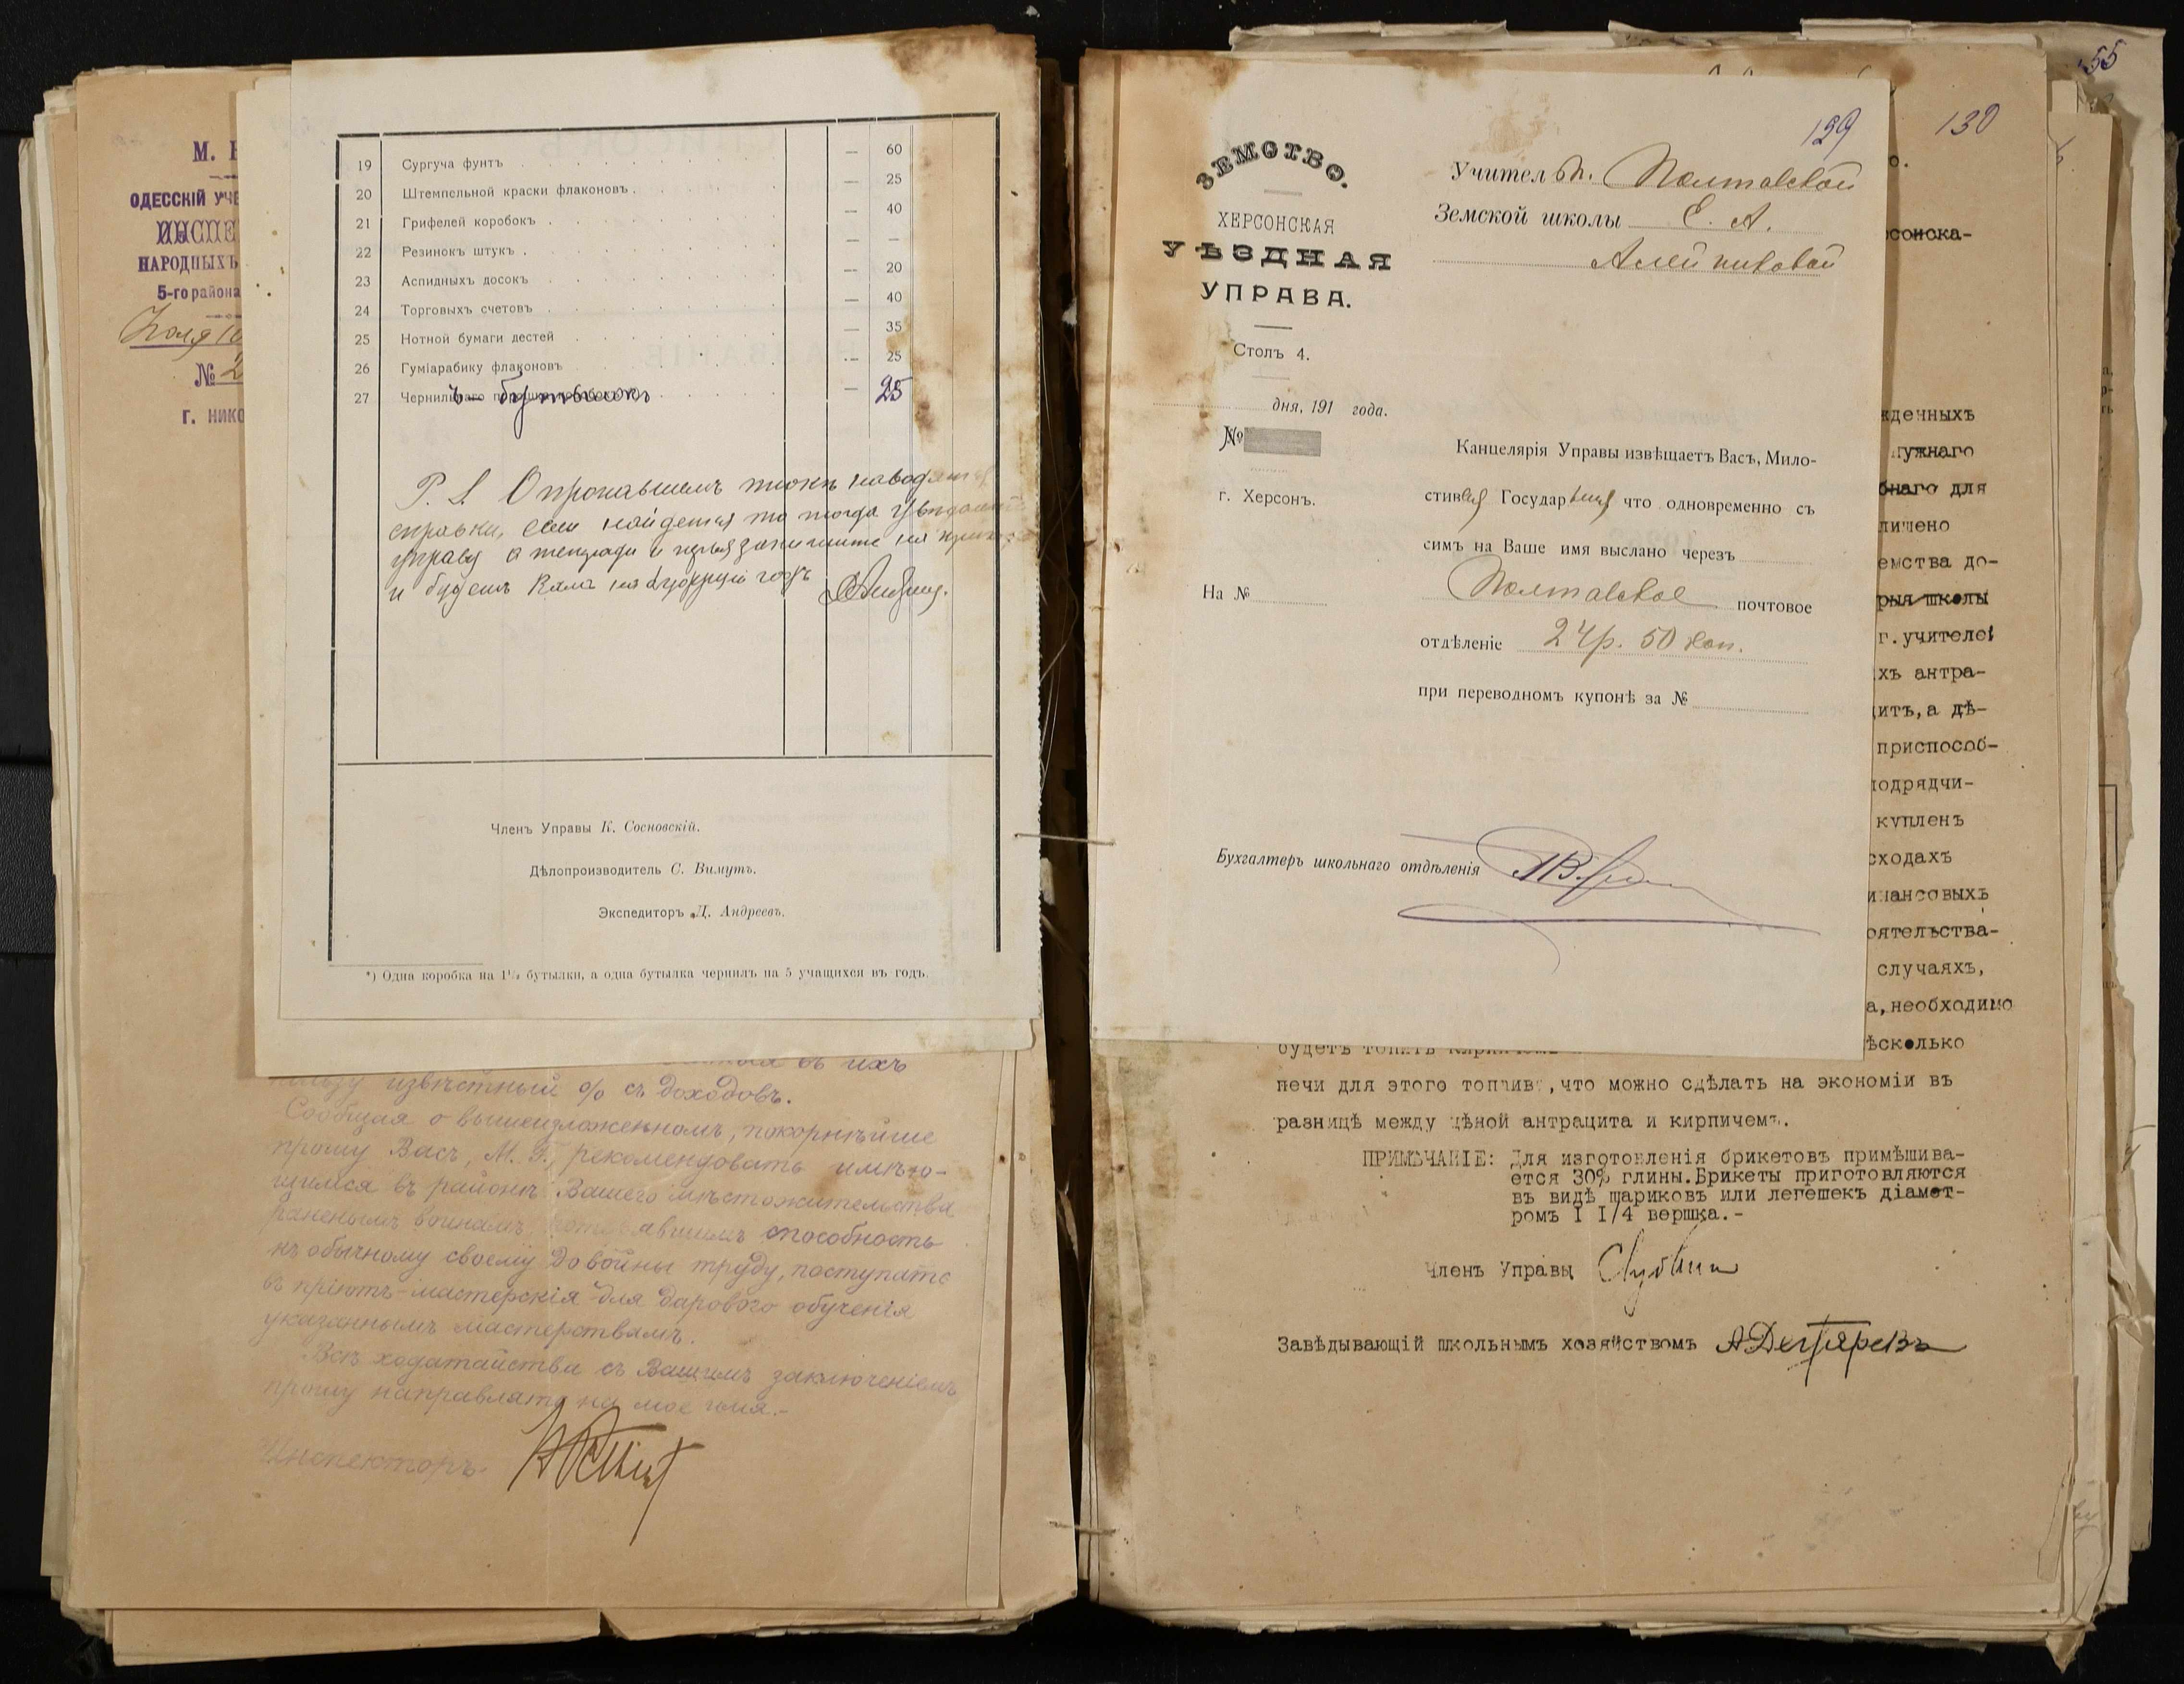 М. Н
ОДЕССКІЙ УЧЕ
ИНСПЕ
НАРОДНЫХЪ
5-го района
№ 2
г. НИКО
19 Сургуча фунтъ — 60
20 Штемпельной краски флаконовъ — 25
21 Грифелей коробокъ — 40
22 Резинокъ штукъ — —
23 Аспидныхъ досокъ — 20
24 Торговыхъ счетовъ — 40
25 Нотной бумаги дестей — 35
26 Гуміарабику флаконовъ — 25
27 Чернильнаго бутылокъ — 25
P. S. О пропавшемъ тюкѣ наводятся
справки, если найдется то тогда
управу а тетради и перья запишите на приходъ
и будетъ Вамъ на будущій годъ
Членъ Управы К. Сосновскій.
Дѣлопроизводитель С. Вимутъ.
Экспедиторъ Д. Андреевъ.
*) Одна коробка на 1½ бутылки, а одна бутылка чернилъ на 5 учащихся въ годъ.
въ ихъ
пользу извѣстный % съ доходовъ.
Сообщая о вышеизложенномъ, покорнѣйше
прошу Васъ, М. Г., рекомендовать имѣю-
щимся въ районѣ Вашего мѣстожительства
раненымъ воинамъ, способность
къ обычному своему до войны труду, поступать
въ пріютъ-мастерскія для дарового обученія
указаннымъ мастерствамъ.
Всѣ ходатайства съ Вашимъ заключеніемъ
прошу направлять на мое имя.-
Инспекторъ
55
130
129
ЗЕМСТВО.
ХЕРСОНСКАЯ
УѢЗДНАЯ
УПРАВА.
Столъ 4.
дня, 191 года.
№
г. Херсонъ.
На №
Учительн. Полтавской
Земской школы Е. А.
Алейниковой
Канцелярія Управы извѣщаетъ Васъ, Мило-
стивая Государыня что одновременно съ
симъ на Ваше имя выслано черезъ
Полтавское почтовое
отдѣленіе 24р. 50 коп.
при переводномъ купонѣ за №
Бухгалтеръ школьнаго отдѣленія
о.
рсонска-
жденныхъ
нужнаго
бнаго для
лишено
емства до-
рыя школы
г. учителе
хъ антра-
итъ, а дѣ-
приспособ-
подрядчи-
купленъ
сходахъ
инансовыхъ
оятельства-
случаяхъ,
а, необходимо
ѣсколько
будетъ топить кирпичемъ
печи для этого топлива, что можно сдѣлать на экономіи въ
разницѣ между цѣной антрацита и кирпичемъ.
ПРИМѢЧАНІЕ: Для изготовленія брикетовъ примѣшива-
ется 30% глины. Брикеты приготовляются
въ видѣ шариковъ или лепешекъ діамет-
ромъ I I/4 вершка.-
Членъ Управы
Завѣдывающій школьнымъ хозяйствомъ А Дегтяревъ